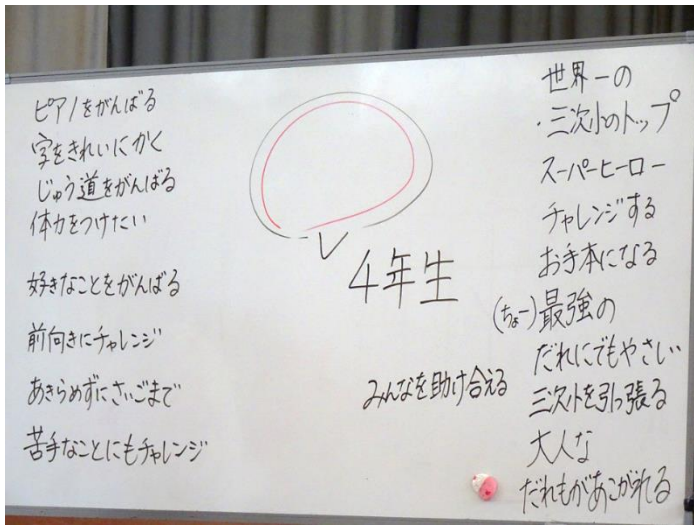 ピアノをがんばる
字をきれいにかく
じゅう道をがんばる
体力をつけたい
好きなことをがんばる
前向きにチャレンジ
あきらめずにさいごまで
苦手なことにもチャレンジ
4年生
みんなを助け合える
世界一の
・三次小のトップ
スーパーヒーロー
チャレンジする
お手本になる
(ちょー)最強の
だれにでもやさしい
三次小を引っ張る
大人な
だれもがあこがれる